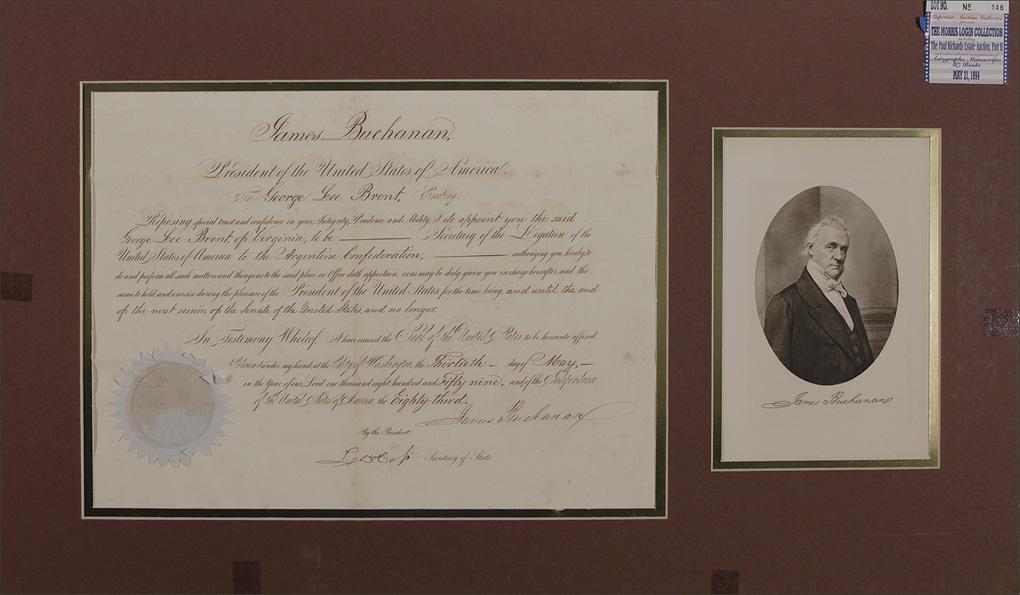 James Buchanan,
President of the United States of America.
To George Lee Brent, Greeting:
Reposing special trust and confidence in your Integrity, Prudence and Ability, I do appoint you the said
George Lee Brent, of Virginia, to be Secretary of the Legation of the
United States of America to the Argentine Confederation, authorizing you, hereby to
do and perform all such matters and things as to the said place or Office doth appertain, or as may be duly given you in charge hereafter, and the
same to hold and exercise during the pleasure of the President of the United States for the time being, and until the end
of the next session of the Senate of the United States, and no longer.
In Testimony Whereof, I have caused the Seal of the United States to be hereunto affixed.
Given under my hand, at the City of Washington, the Thirtieth day of May,
in the Year of our Lord one thousand eight hundred and Fifty nine, and of the Independence
of the United States of America the Eighty third.
James Buchanan
By the President.
Secretary of State
James Buchanan
LOT NO. Nº 146
Superior Auction Galleries
THE MORRIS LOGIN COLLECTION
The Paul Richards Estate Auction, Part II
Autographs, Manuscripts
& Books
MAY 21, 1994